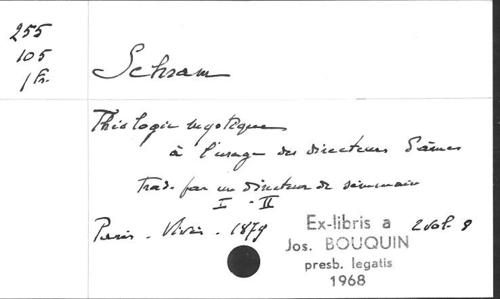 255
105
1 Fr.
Schram
Théologie mystique
à l'usage des directeurs d'âmes
Trad. par un directeur de séminaire
I - II
Paris - Vivès - 1879 2 vol. 8
Ex-libris a
Jos. BOUQUIN
presb. legatis
1968